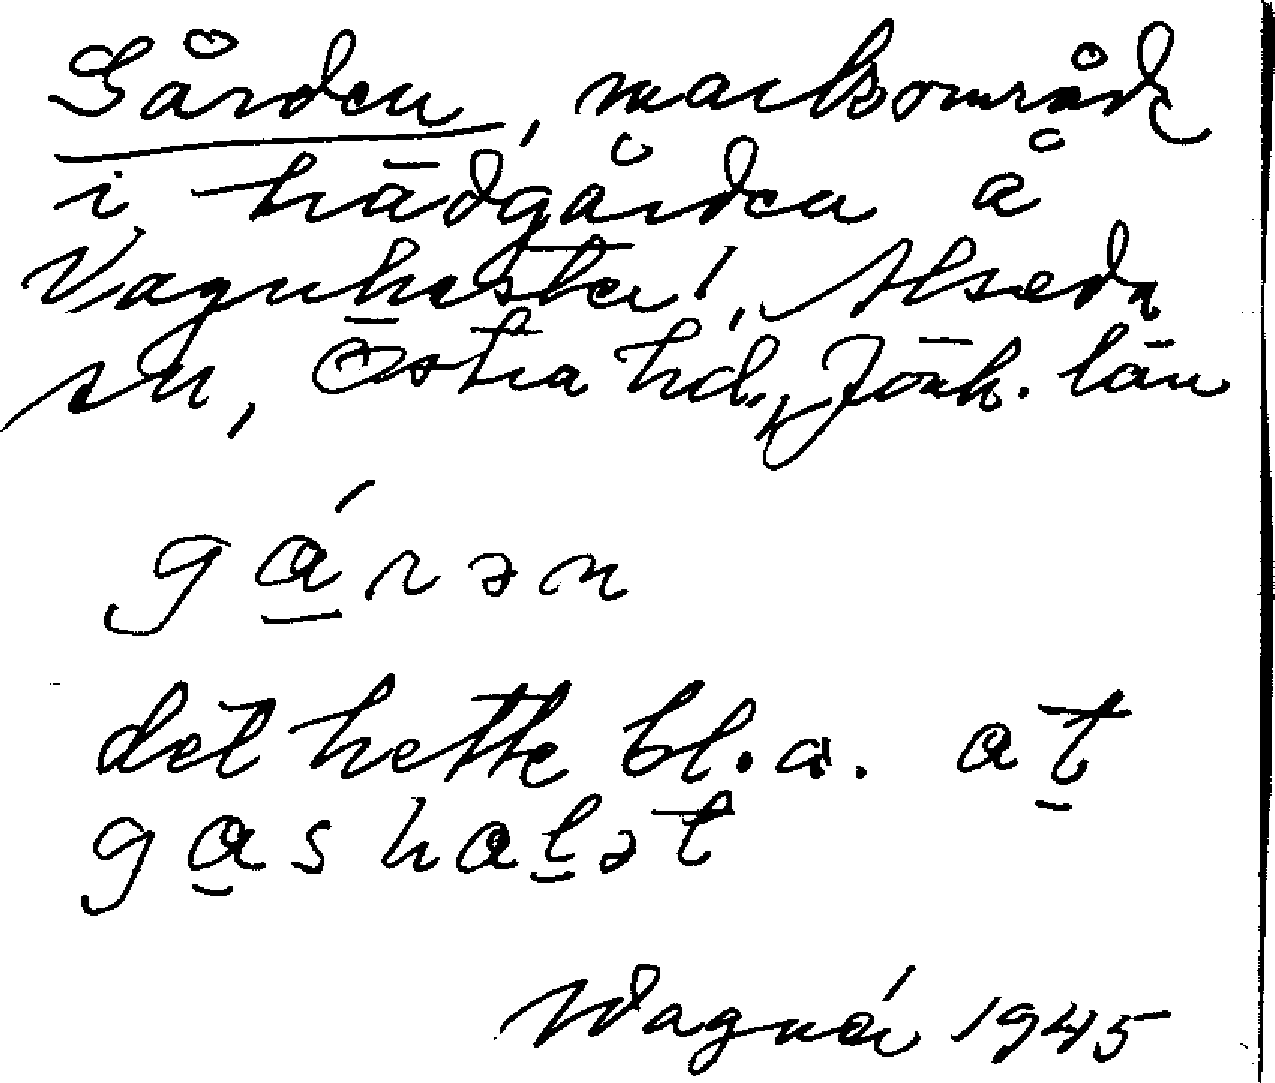 Gården, markområde
i trädgården å
Vagnhester, Alseda
sn, Östra hd., Jönk. län
gá̱rən
det hette bl.a. at̠
ga̱s hol̠ət
Wagnér 1945